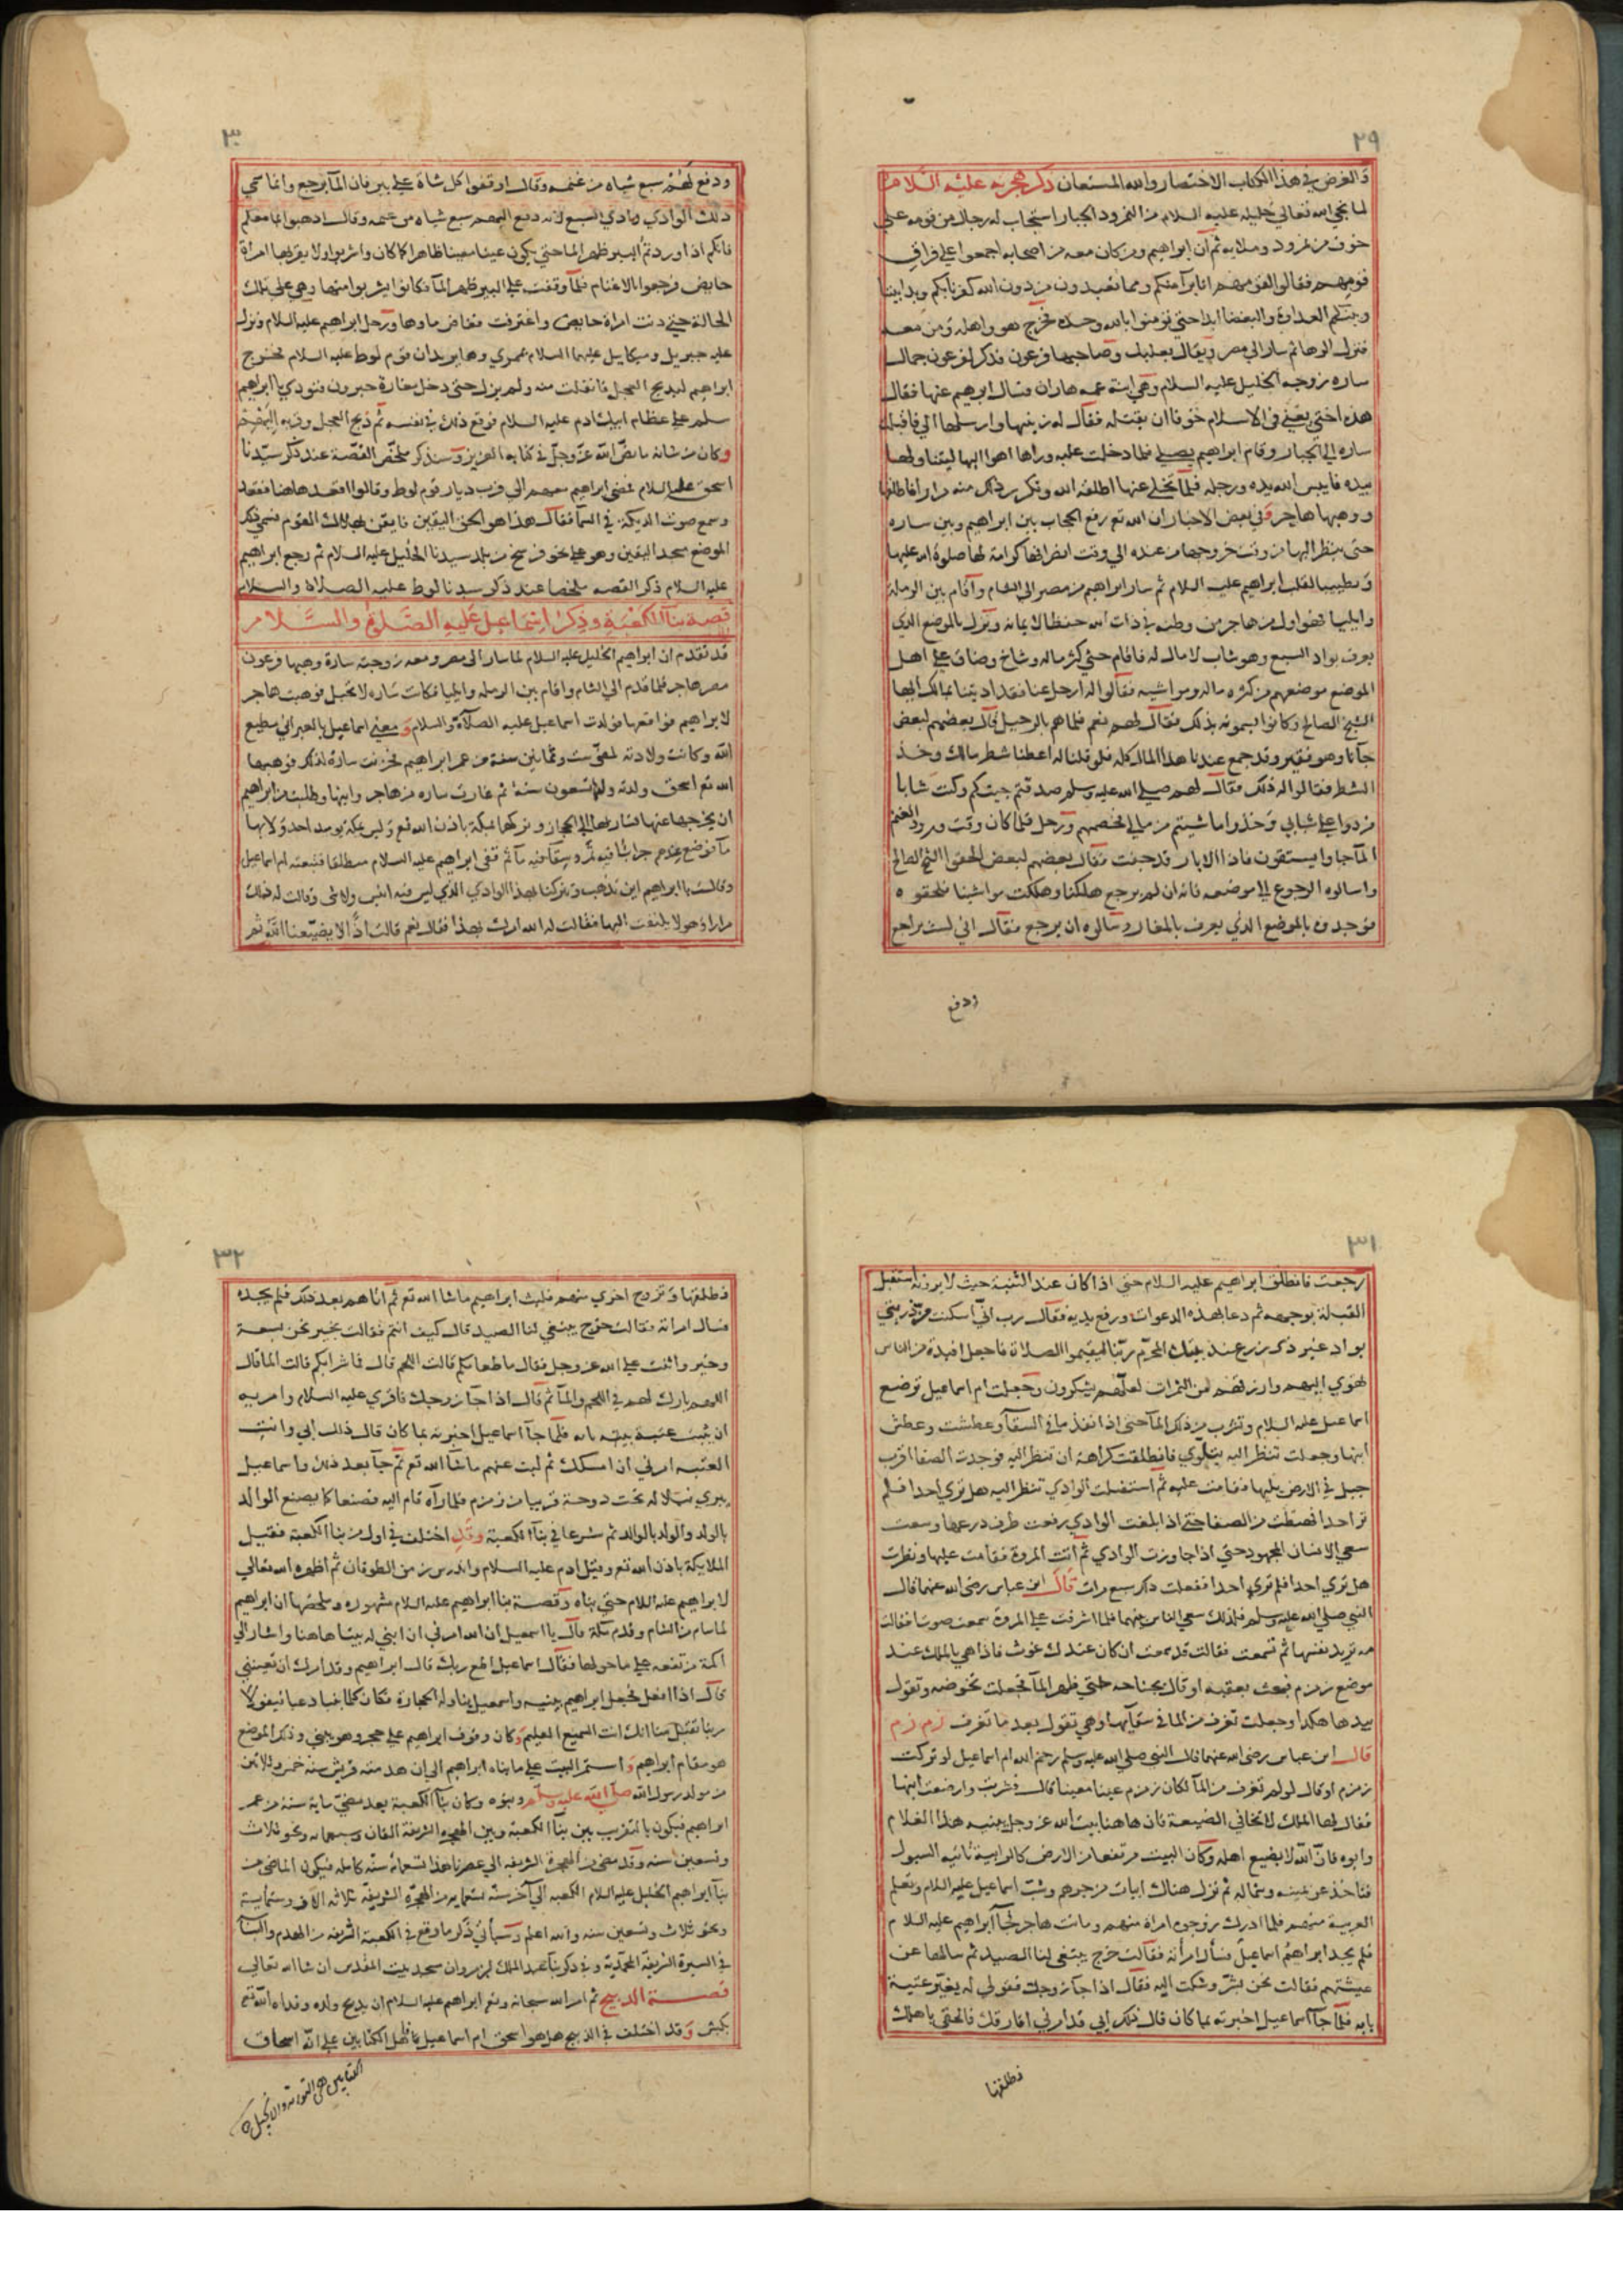 ٢٩
والغرض في هذا الكتاب الاختصار والله المستعان ذكر هجرته عليه السلام
لما نجي الله تعالي خليله عليه السلام من النمرود الجبار استجاب له رجال من قومه علي
خوف من نمرود وملايه ثم ان ابراهيم ومن كان معه من اصحابه اجمعوا علي فراق
قومهم فقالوا لقومهم انا برآ منكم ومما تعبدون من دون الله كفرنا بكم وبدا بيننا
وبينكم العداوة والبغضا ابدا حتي تومنوا بالله وحده فخرج هو واهله ومن معه
فنزل الرها ثم سار الي مصر ويقال بعلبك وصاحبها فرعون فذكر لفرعون جمال
ساره زوجة الخليل عليه السلام وهي ابنة عمه هاران فسال ابرهيم عنها فقال
هذه اختي يعني في الاسلام خوفا ان يقتله فقال له زينها وارسلها الي فاقبلت
ساره الي الجبار وقام ابراهيم يصلي فلما دخلت عليه وراها اهوا اليها ليتناولها
بيده فايبس الله يده ورجله فلما تخلي عنها اطلقه الله وتكرر ذلك منه مرارا فاطلقها
ووهبها هاجر وفي بعض الاخبار ان الله تع رفع الحجاب بين ابراهيم وبين ساره
حتي ينظر اليها من وقت خروجها من عنده الي وقت انصرافها كرامة لها صلوة الله عليها
وتطييبا لقلب ابراهيم عليه السلام ثم سار ابراهيم من مصر الي الشام واقام بين الرملة
وايليا فهو اول من هاجر من وطنه في ذات الله حفظا لايمانه ونزل بالموضع الذي
يعرف بواد السبع وهو شاب لا مال له فاقام حتي كثر ماله وشاخ وضاق علي اهل
الموضع موضعهم من كثرة ماله ومواشيه فقالوا له ارحل عنا فقد اذيتنا بمالك ايها
الشيخ الصالح وكانوا يسمونه بذلك فقال لهم نعم فلما هم بالرحيل قال بعضهم لبعض
جآنا وهو فقير وقد جمع عندنا هذا المال كله فلو قلنا له اعطنا شطر مالك وخذ
الشطر فقالوا له ذلك فقال لهم صلي الله عليه وسلم صدقتم جيتكم وكنت شابا
فردوا علي شبابي وخذوا ما شيتم من مالي فخصمهم ورحل فلما كان وقت ورود الغنم
المآ جاوا يستقون فاذا الابار قد جفت فقال بعضهم لبعض الحقوا الشيخ الصالح
واسالوه الرجوع الي موضعه فانه ان لم يرجع هلكنا وهلكت مواشينا فلحقوه
فوجدوه بالموضع الذي يعرف بالمغار وسالوه ان يرجع فقال اني لست براجع
ودفع
٣٠
ودفع لهم سبع شياه من غنمه وقال اوقفوا كل شاة علي بير فان المآ يرجع وانما سمي
ذلك الوادي وادي السبع لانه دفع اليهم سبع شياه من غنمه وقال اذهبوا بها معكم
فانكم اذا اوردتم البير ظهر الما حتي يكون عينا معينا ظاهرا كما كان واشربوا ولا يقربها امراة
حايض فرجعوا بالاغنام فلما وقفت علي البير ظهر المآ فكانوا يشربوا منها وهي علي تلك
الحالة حتي دنت امراة حايض واغترفت فغاض ماوها ورحل ابراهيم عليه السلام ونزل
عليه جبريل وميكاييل عليهما السلام بممري وهما يريدان قوم لوط عليه السلام فخرج
ابراهيم ليذبح العجل فانفلت منه ولم يزل حتي دخل مغارة حبرون فنودي يا ابراهيم
سلم علي عظام ابيك ادم عليه السلام فوقع ذلك في نفسه ثم ذبح العجل وقربه اليهم
وكان من شانه ما نص الله عز وجل في كتابه العزيز وسنذكر ملخص القصة عند ذكر سيدنا
اسحق عليه السلام فمضي ابراهيم معهم الي قرب ديار قوم لوط وقالوا اقعد هاهنا فقعد
وسمع صوت الديكة في السمآ فقال هذا هو الحق اليقين فايقن بهلاك القوم فسمي ذلك
الموضع مسجد اليقين وهو علي نحو فرسخ من بلد سيدنا الخليل عليه السلام ثم رجع ابراهيم
عليه السلام ذكر القصه ملخصا عند ذكر سيدنا لوط عليه الصلاة والسلام
قصة بنآ الكعبة وذكر اسماعيل عليه الصلوة والسلام
قد تقدم ان ابراهيم الخليل عليه السلام لما سار الي مصر ومعه زوجته سارة وهبها فرعون
مصر هاجر فلما قدم الي الشام واقام بين الرملة وايليا فكانت سارة لا تحبل فوهبت هاجر
لابراهيم فواقعها فولدت اسماعيل عليه الصلاة والسلام ومعني اسماعيل بالعبراني مطيع
الله وكانت ولادته لمضي ست وثمانين سنة من عمر ابراهيم فحزنت سارة لذلك فوهبها
الله تع اسحق ولدته ولها تسعون سنة ثم غارت ساره من هاجر وابنها وطلبت من ابراهيم
ان يخرجها عنها فسار بهما الي الحجاز وتركهما بمكة باذن الله تع وليس بمكة يوميذ احد ولا بها
مآ فوضع عندهم جرابا فيه تمر وسقآ فيه مآ ثم قفي ابراهيم عليه السلام منطلقا فتبعته ام اسماعيل
وقالت يا ابراهيم اين تذهب وتتركنا بهذا الوادي الذي ليس فيه انيس ولا شي وقالت له ذلك
مرارا وهو لا يلتفت اليها فقالت له الله امرك بهذا فقال نعم قالت اذًا لا يضيعنا الله ثم
٣١
رجعت فانطلق ابراهيم عليه السلام حتي اذا كان عند الثنية حيث لا يرونه استقبل
القبلة بوجهه ثم دعا بهذه الدعوات ورفع يديه فقال رب اني اسكنت من ذريتي
بواد غير ذي زرع عند بيتك المحرم ربنا ليقيموا الصلاة فاجعل افيدة من الناس
تهوي اليهم وارزقهم من الثمرات لعلهم يشكرون وجعلت ام اسماعيل ترضع
اسماعيل عليه السلام وتشرب من ذلك المآ حتي اذا نفذ ما في السقآ وعطشت وعطش
ابنها وجعلت تنظر اليه يتلوي فانطلقت كراهة ان تنظر اليه فوجدت الصفا اقرب
جبل في الارض يليها فقامت عليه ثم استقبلت الوادي تنظر اليه هل تري احدا فلم
تر احدا فهبطت من الصفا حتي اذا بلغت الوادي رفعت طرف درعها وسعت
سعي الانسان المجهود حتي اذا جاوزت الوادي ثم اتت المروة فقامت عليها ونظرت
هل تري احدا فلم تري احدا ففعلت ذلك سبع مرات قال ابن عباس رضي الله عنهما قال
النبي صلي الله عليه وسلم فلذلك سعي الناس بينهما فلما اشرفت علي المروة سمعت صوتا فقالت
مه تريد نفسها ثم تسمعت فقالت قد سمعت ان كان عندك غوث فاذا هي بالملك عند
موضع زمزم فبحث بعقبه او قال بجناحه حتي ظهر المآ فجعلت تخوضه وتقول
بيدها هكذا وجعلت تغرف من الما في سقآيها وهي تقول بعد ما تغرف زم زم
قال ابن عباس رضي الله عنهما قال النبي صلي الله عليه وسلم رحم الله ام اسماعيل لو تركت
زمزم او قال لو لم تغرف من المآ لكان زمزم عينا معينا قال فشربت وارضعت ابنها
فقال لها الملك لا تخافي الضيعة فان هاهنا بيت الله عز وجل يبنيه هذا الغلام
وابوه فان الله لا يضيع اهله وكان البيت مرتفعا من الارض كالرابية تاتيه السيول
فتاخذ عن يمينه وشماله ثم نزل هناك ابيات من جرهم وشب اسماعيل عليه السلام وتعلم
العربية منهم فلما ادرك زوجوه امراة منهم وماتت هاجر فجآ ابراهيم عليه السلام
فلم يجد ابراهيم اسماعيل فسأل امرأته فقالت خرج يبتغي لنا الصيد ثم سالها عن
عيشتهم فقالت نحن بشر وشكت اليه فقال اذا جآ زوجك فقولي له يغير عتبة
بابه فلما جآ اسماعيل اخبرته بما كان قال ذلك ابي قد امرني افارقك فالحقي باهلك
فطلقها
٣٢
فطلقها وتزوج اخري منهم فلبث ابراهيم ما شا الله تع ثم آتاهم بعد ذلك فلم يجده
فسال امراته فقالت خرج يبتغي لنا الصيد قال كيف انتم فقالت بخير نحن بسعة
وخير واثنت علي الله عز وجل فقال ما طعامكم قالت اللحم قال فما شرابكم قالت الما قال
اللهم بارك لهم في اللحم والمآ ثم قال اذا جآ زوجك فاقري عليه السلام وامريه
ان يثبت عتبة بيته بابه فلما جآ اسماعيل اخبرته بما كان قال ذلك ابي وانت
العتبه امرني ان امسكك ثم لبث عنهم ما شآ الله تع ثم جآ بعد ذلك واسماعيل
يبري نبلا له تحت دوحة قريبا من زمزم فلما رآه قام اليه فصنعا كما يصنع الوالد
بالولد والولد بالوالد ثم شرعا في بنآ الكعبة وقد اختلف في اول من بنا الكعبة فقيل
الملايكة باذن الله تع وقيل ادم عليه السلام واندرس زمن الطوفان ثم اظهره الله تعالي
لابراهيم عليه السلام حتي بناه وقصة بنا ابراهيم عليه السلام مشهوره وملخصها ان ابراهيم
لما سار من الشام وقدم مكة قال يا اسمعيل ان الله امرني ان ابني له بيتا هاهنا واشار الي
اكمة مرتفعه علي ما حولها فقال اسماعيل اطع ربك قال ابراهيم وقد امرك ان تعينني
قال اذا افعل فجعل ابراهيم يبنيه واسمعيل يناوله الحجارة فكان كلما بنيا دعيا فيقولا
ربنا تقبل منا انك انت السميع العليم وكان وقوف ابراهيم علي حجر وهو يبني وذلك الموضع
هو مقام ابراهيم واستمر البيت علي ما بناه ابراهيم الي ان هدمته قريش سنة خمس وثلاثين
من مولد رسول الله صلي الله عليه وسلم وبنوه وكان بنآ الكعبة بعد مضي ماية سنة من عمر
ابراهيم فيكون بالتقريب بين بنآ الكعبة وبين الهجرة الشريفة الفان وسبعمايه ونحو ثلاث
وتسعين سنه وقد مضي من الهجرة الشريفه الي عصرنا هذا تسعماية سنه كامله فيكون الماضي من
بنآ ابراهيم الخليل عليه السلام الكعبه الي آخر سنة تسعمايه من الهجرة الشريفة ثلاثه الاف وستماية
ونحو ثلاث وتسعين سنه والله اعلم وسيأتي ذكر ما وقع في الكعبة الشريفه من الهدم والبنآ
في السيرة الشريفة المحمدية وفي ذكر بنآ عبد الملك بن مروان مسجد بيت المقدس ان شا الله تعالي
قصة الذبيح ثم امر الله سبحانه وتع ابراهيم عليه السلام ان يذبح ولده وفداه الله تع
بكبش وقد اختلف في الذبيح هل هو اسحق ام اسماعيل فاهل الكتابين علي انه اسحاق
الكتابين هي التوراة والانجيل